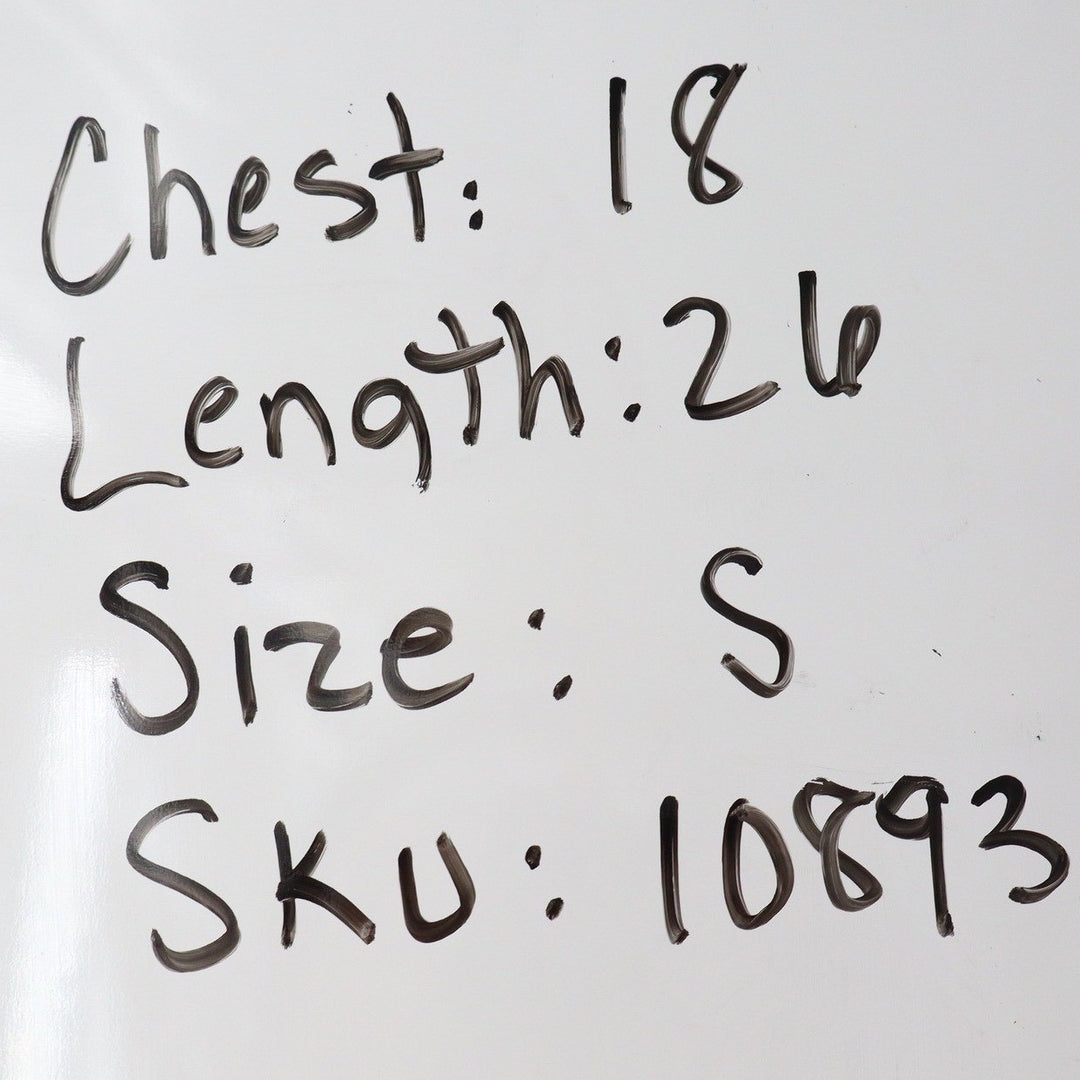 Chest: 18
Length: 26
Size: S
SKU: 10893